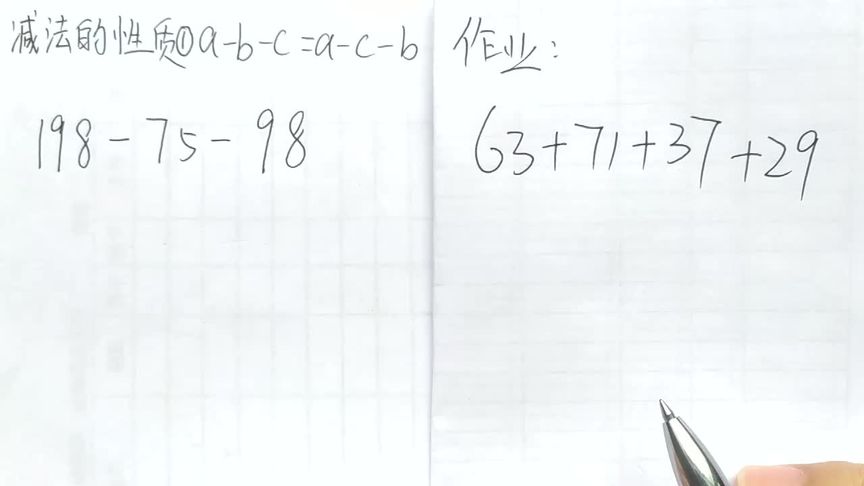 减法的性质①a-b-c=a-c-b
198-75-98
作业:
63+71+37+29